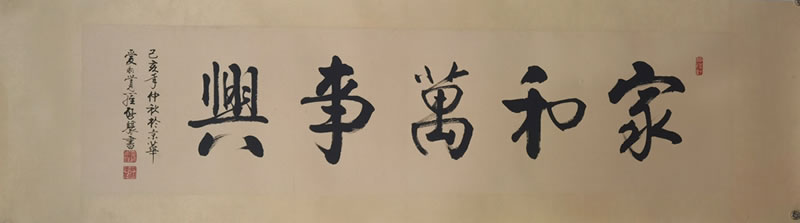 家和萬事興
己亥年仲秋於京華
愛新覺羅 書